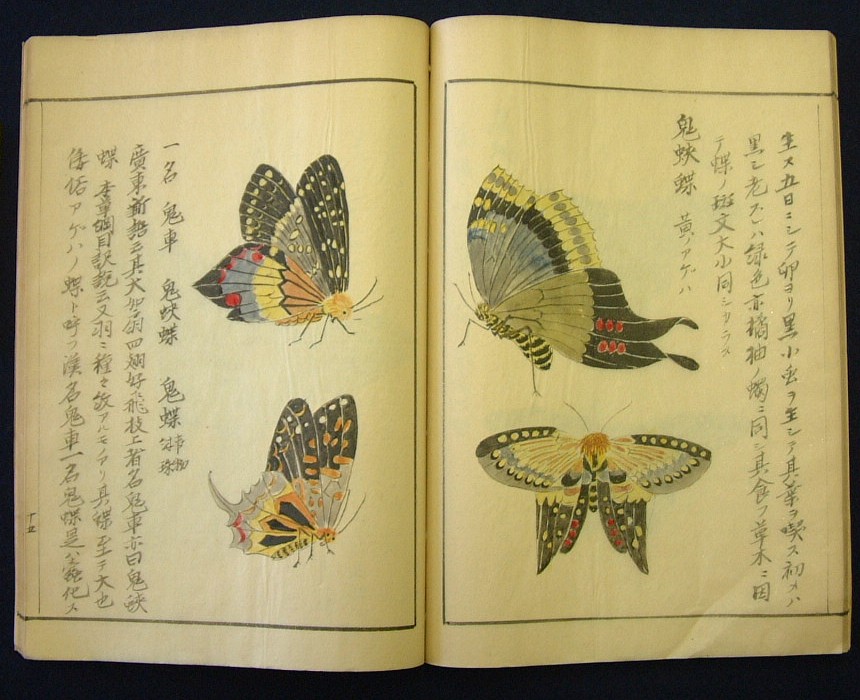 生ス五日ニシテ卵ヨリ黒小虫ヲ生シテ其葉ヲ喫ス初メハ
黒シ老スレハ緑色亦橘柚ノ蠋ニ同シ其食フ草木ニ因
テ蝶ノ斑文大小同シカラス
鬼蛺蝶 黄ノアゲハ
一名 鬼車 鬼蛺蝶 鬼蝶
廣東新語云其大如扇四翅好飛枝上者名鬼車亦曰鬼蛺
蝶 本草綱目訳説云又羽ニ種々紋アルモノアリ其蝶至テ大也
倭俗アゲハノ蝶ト呼フ漢名鬼車一名鬼蝶是 化ス
十五